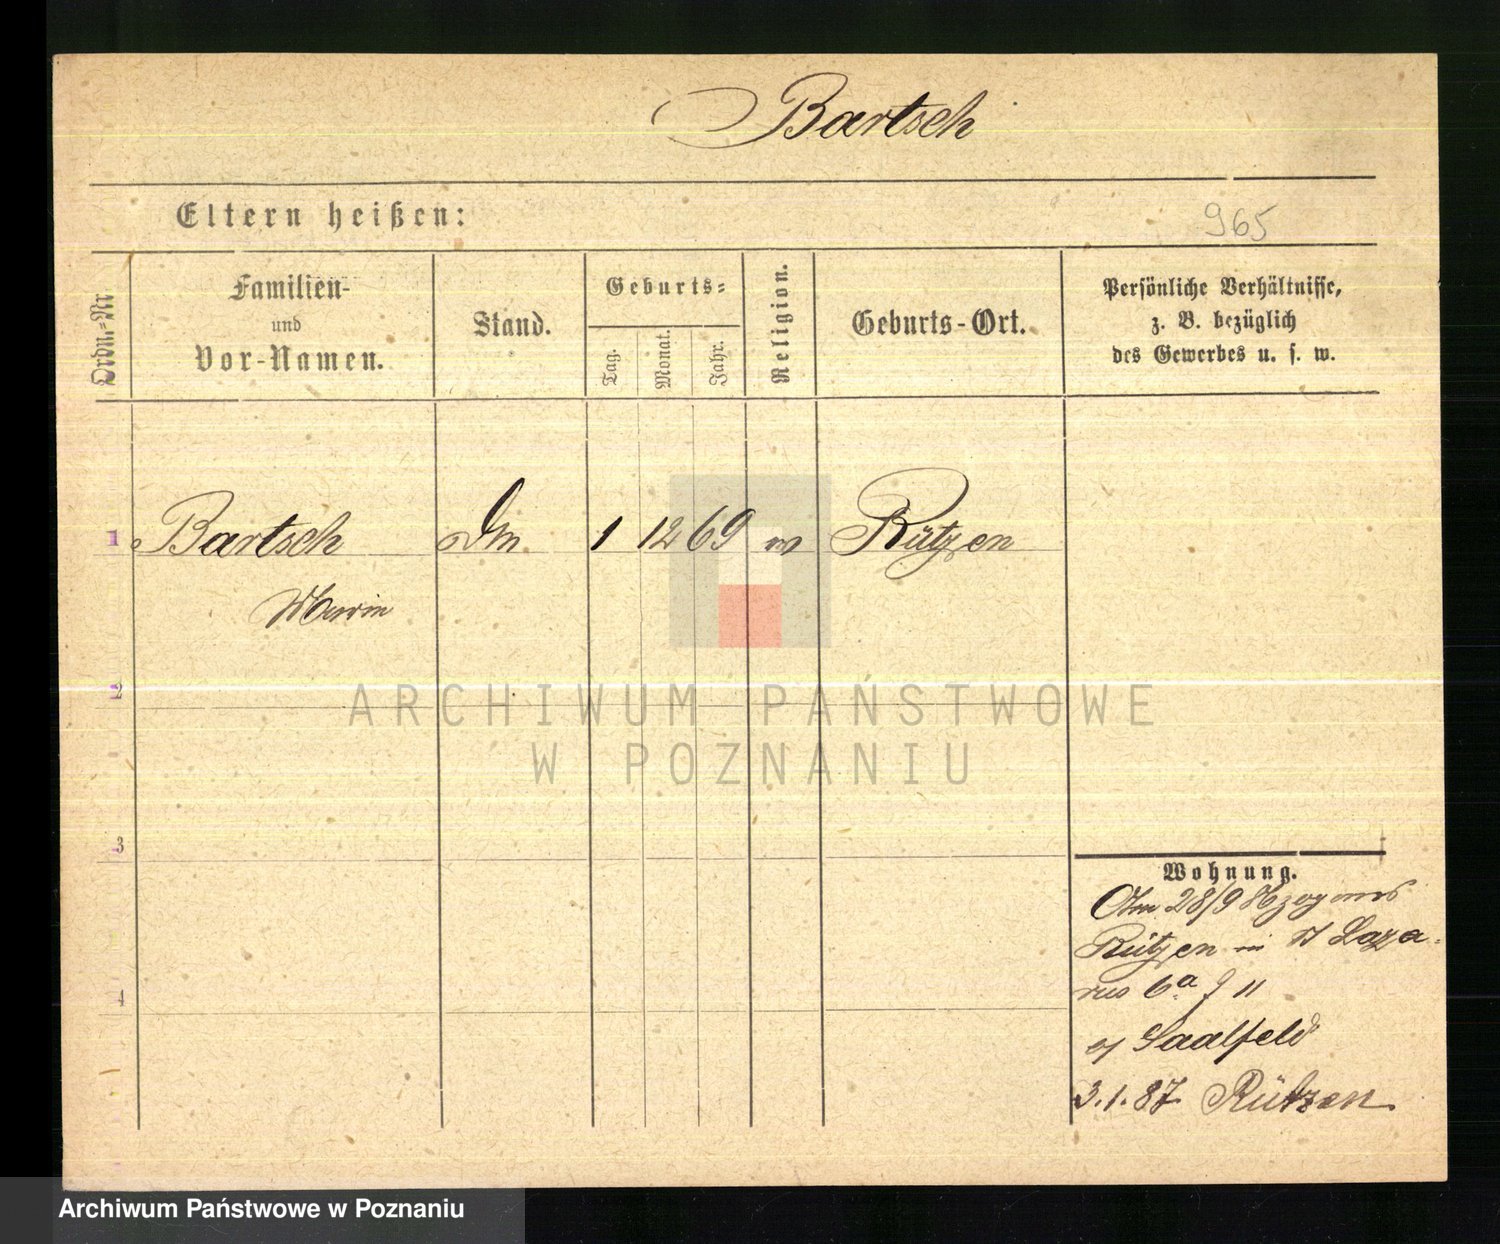 Bartsch
Eltern heißen:
965
Ordn.-Nr
Familien-
und
Vor-Namen.
Stand.
Geburts=
Tag.
Monat.
Jahr.
Religion.
Geburts-Ort.
Persönliche Verhältnisse,
z. B. bezüglich
des Gewerbes u. s. w.
1 Bartsch 1 12 69 Rützen
2
3
4
Wohnung.
28/9
Rützen in St Laza-
rus 6a 11
Saalfeld
3.1.87 Rützen
ARCHIWUM PAŃSTWOWE
W POZNANIU
Archiwum Państwowe w Poznaniu